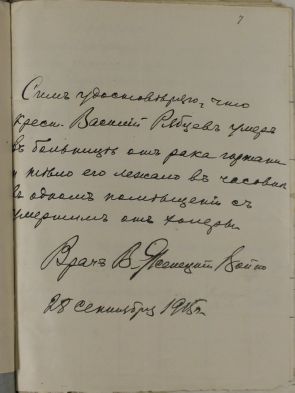 7
Симъ удостовѣряю, что
крест. Василій Рябцевъ умеръ
въ больницѣ отъ рака гортани
и тѣло его лежало въ часовнѣ
въ одномъ помѣщеніи съ
умершимъ отъ холеры.
Врачъ В. Ясенецкій Войно
28 сентября 1915 г.